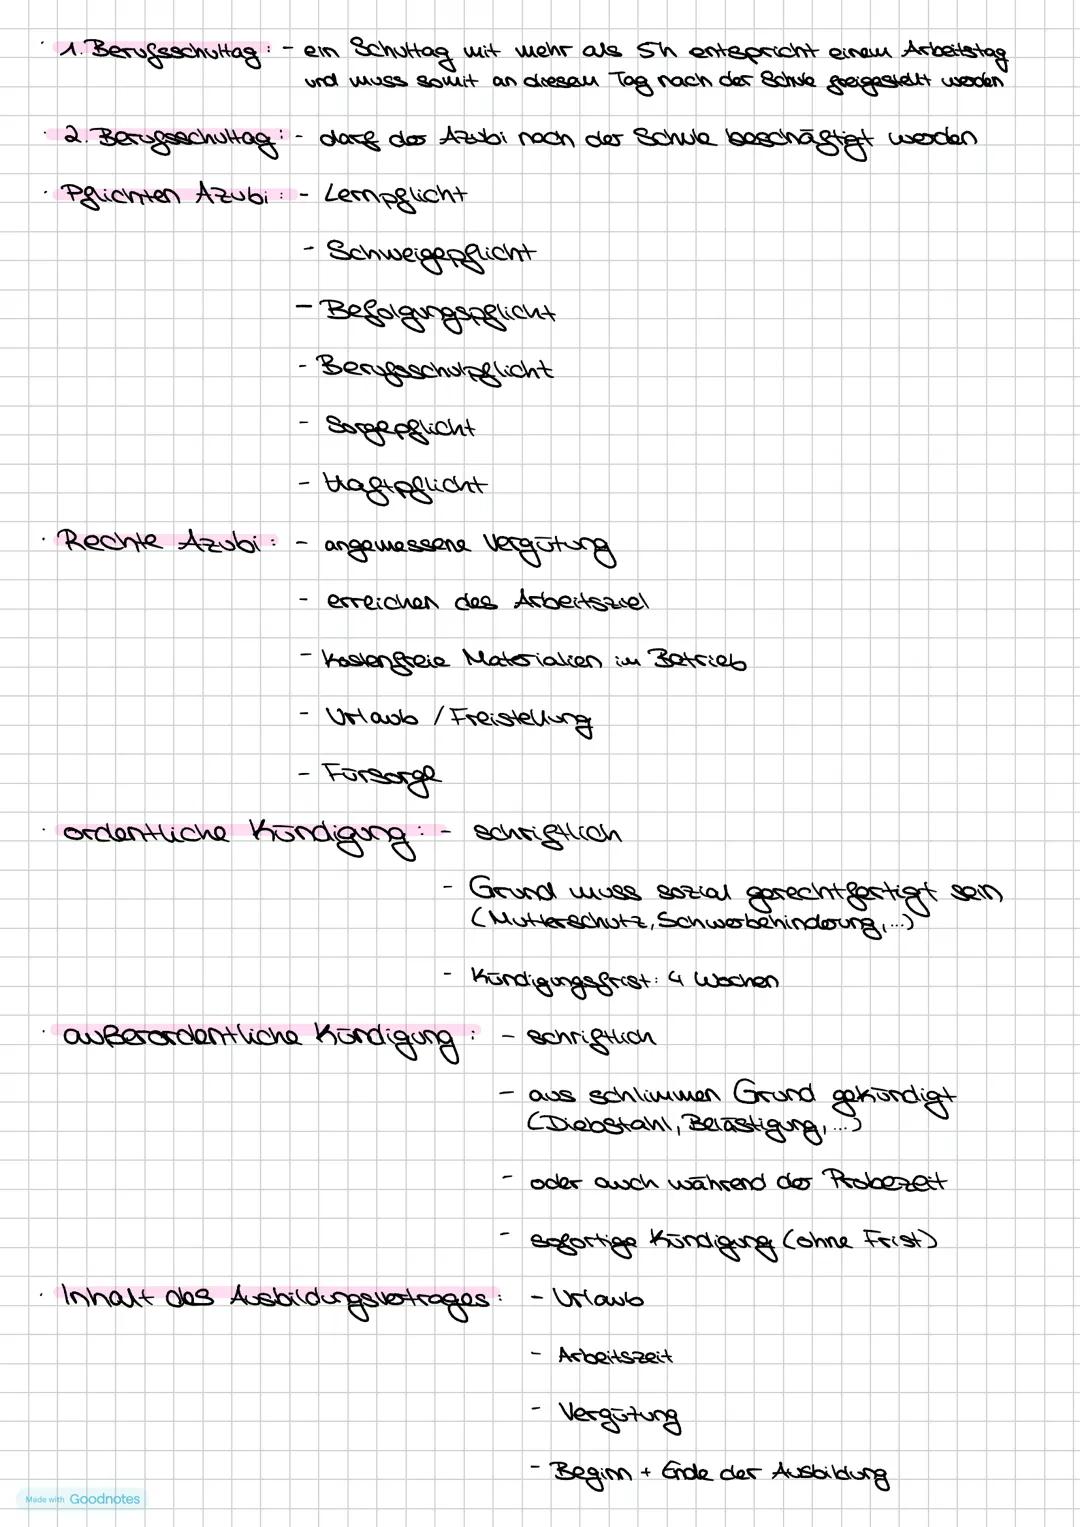 · 1. Berufsschultag: - ein Schultag mit mehr als 5h entspricht einem Arbeitstag
und muss somit an diesem Tag nach der Schule freigestellt werden
· 2. Berufsschultag: - darf der Azubi nach der Schule beschäftigt werden
· Pflichten Azubi: - Lernpflicht
- Schweigepflicht
- Befolgungspflicht
- Berufsschulpflicht
- Sorgepflicht
- Haftpflicht
· Rechte Azubi: - angemessene Vergütung
- erreichen des Arbeitsziel
- Kostenfreie Materialien im Betrieb
- Urlaub / Freistellung
- Fürsorge
· ordentliche Kündigung: - schriftlich
- Grund muss sozial gerechtfertigt sein
(Mutterschutz, Schwerbehinderung, ...)
- Kündigungsfrist: 4 Wochen
· außerordentliche Kündigung: - schriftlich
- aus schlimmen Grund gekündigt
(Diebstahl, Belästigung, ...)
- oder auch während der Probezeit
- sofortige Kündigung (ohne Frist)
· Inhalt des Ausbildungsvertrages: - Urlaub
- Arbeitszeit
- Vergütung
- Beginn + Ende der Ausbildung
Made with Goodnotes